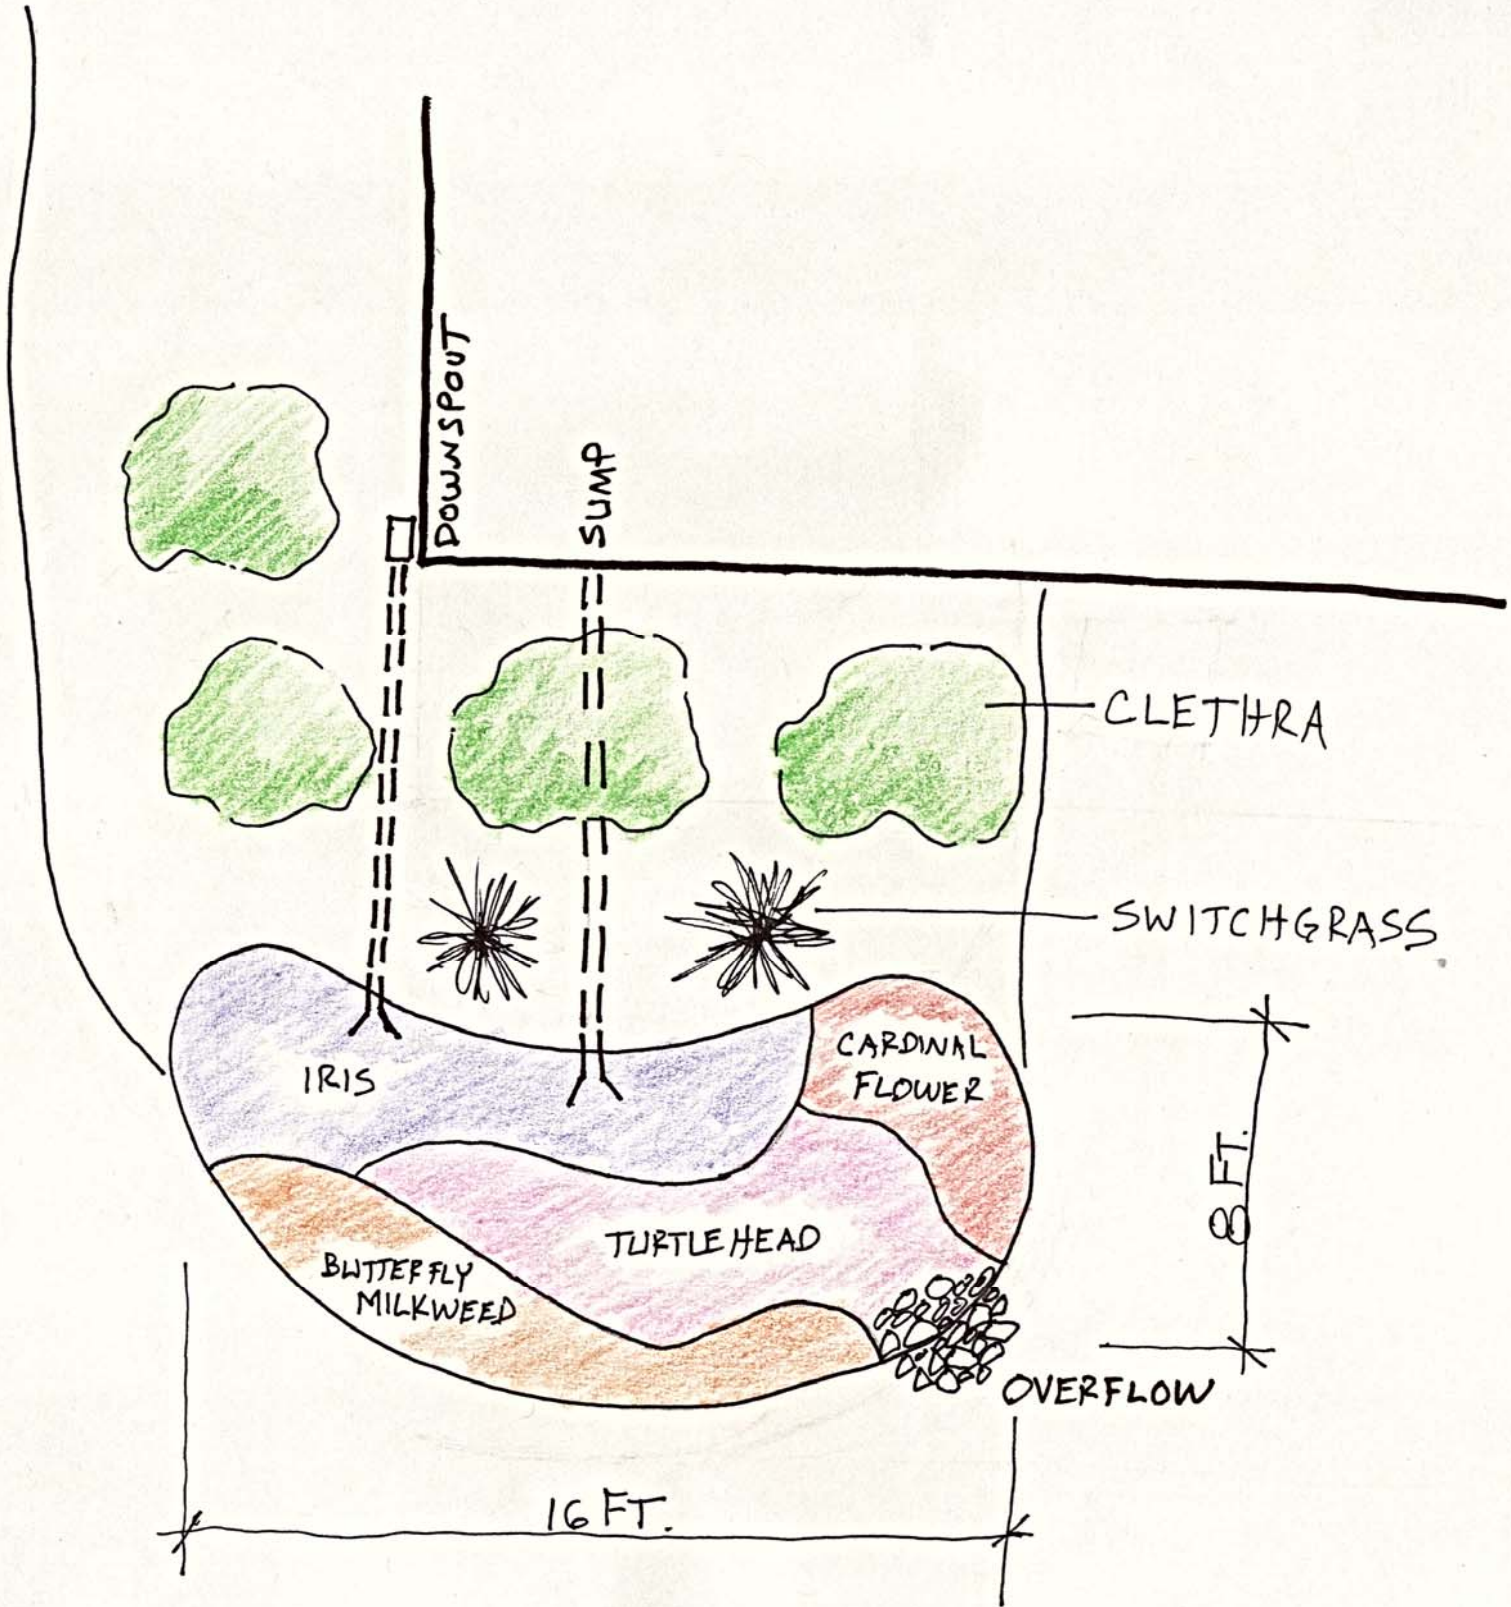 DOWNSPOUT
SUMP
CLETHRA
SWITCHGRASS
CARDINAL
FLOWER
IRIS
8 FT.
TURTLEHEAD
BUTTERFLY
MILKWEED
OVERFLOW
16 FT.